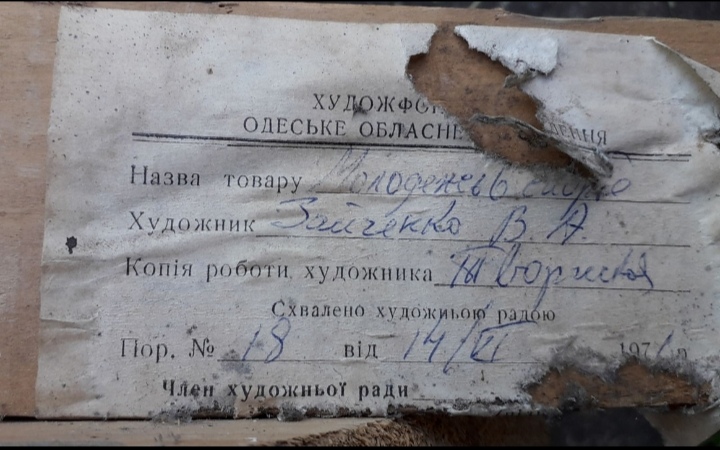 ХУДОЖФО
ОДЕСЬКЕ ОБЛАСНЕ ДЕННЯ
Назва товару Молодежь
Художник Зайченко В. А.
Копія роботи художника Творческая
Схвалено художньою радою
Пор. № 18 від 14/VI 1971 р
Член художньої ради